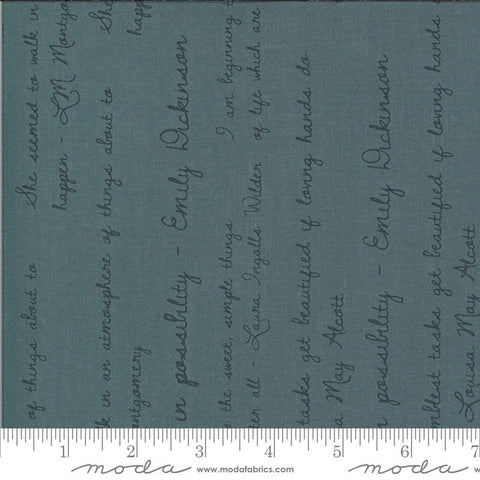 She seemed to walk in
of things about to
happen - LM Montgo
She
k in an atmosphere of things about to
happ
ontgomery
in possibility - Emily Dickinson
I am beginning t
s the sweet, simple things
of life which are
ter all - Laura Ingalls Wilder
tasks get beautified if loving hands do
a May Alcott
n possibility - Emily Dickinson
mblest tasks get beautified if loving hands
Louisa May Alcott
1 2 3 4 5 6 7
moda www.modafabrics.com moda